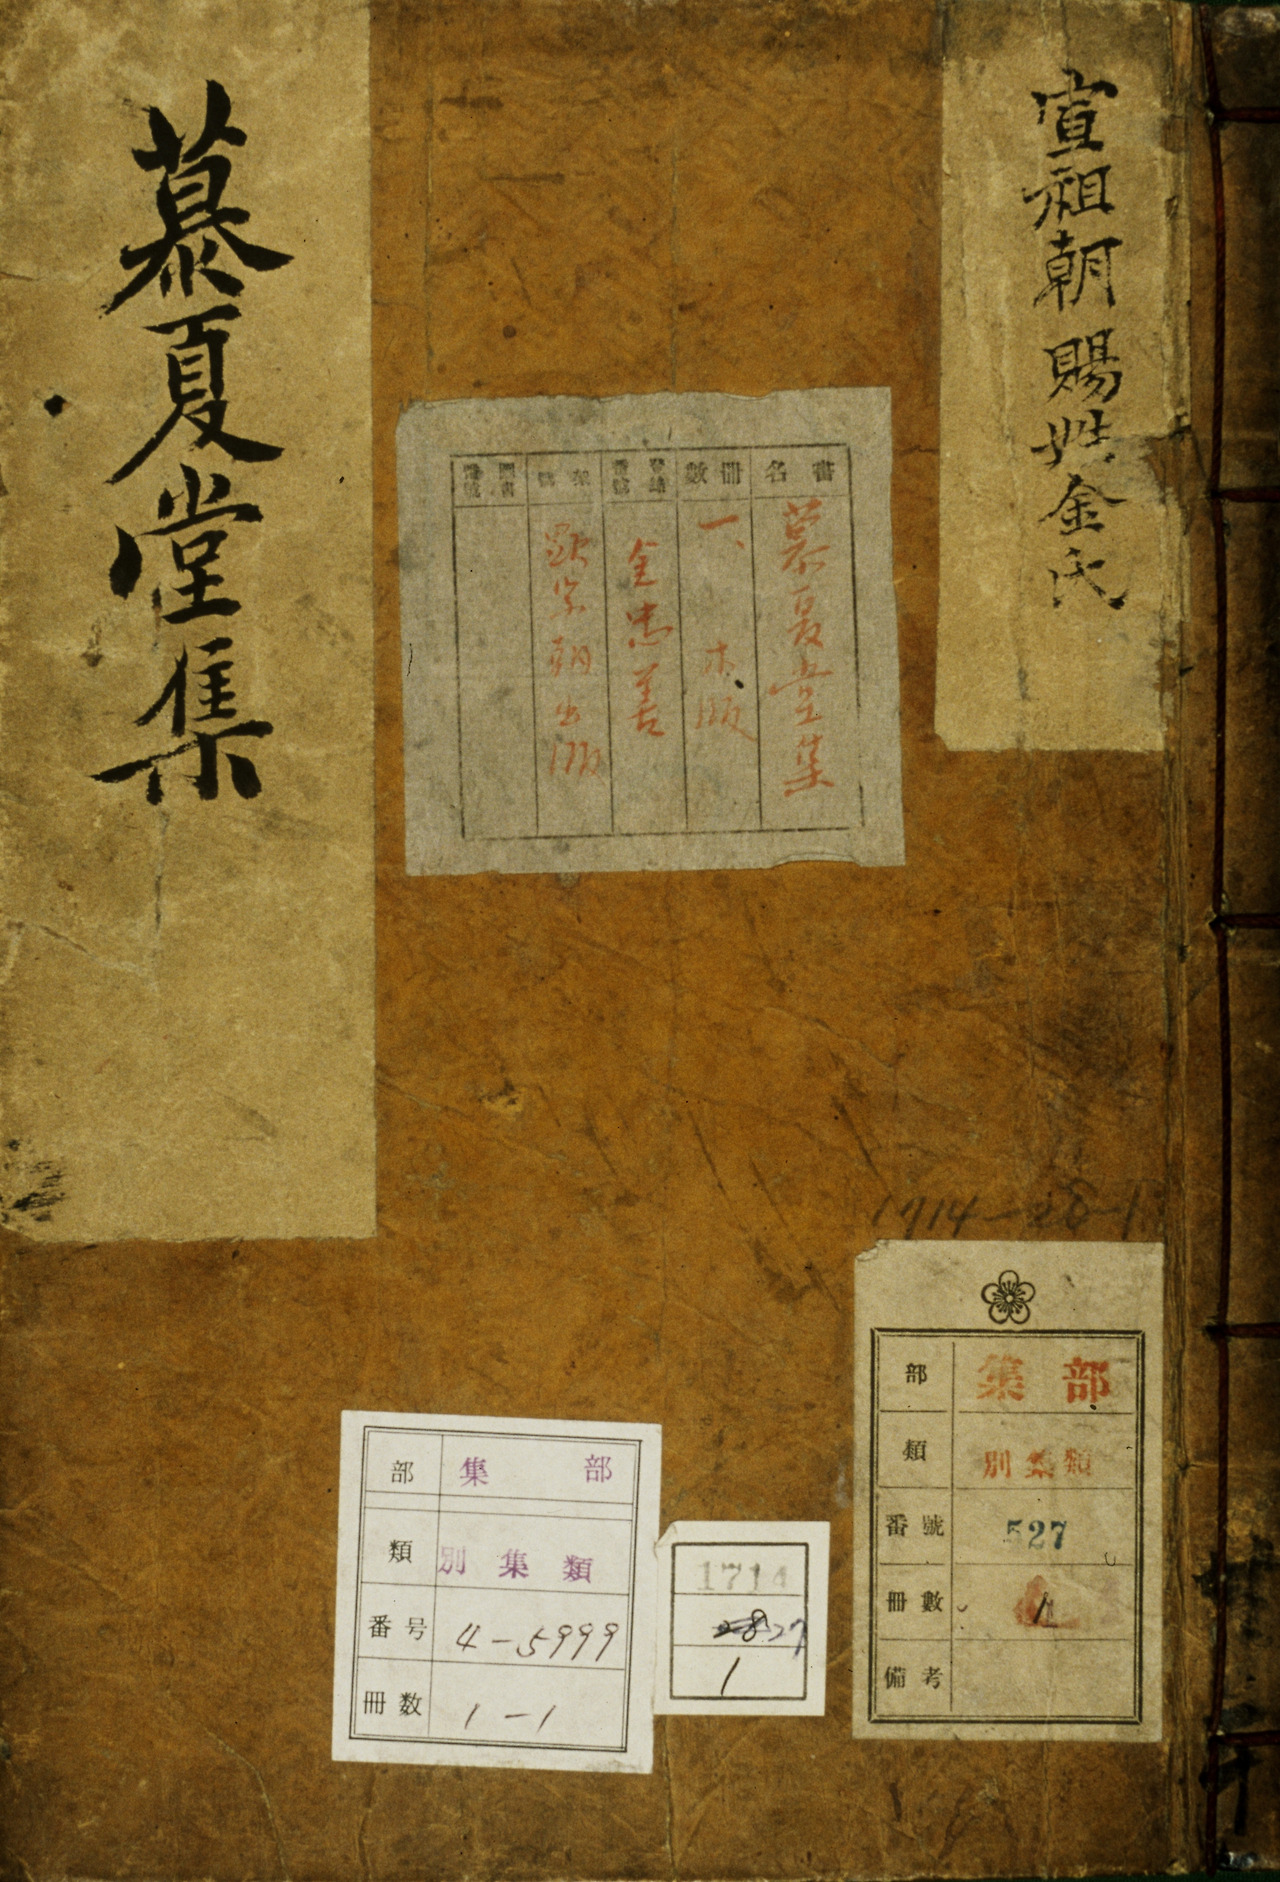 宣祖朝賜姓金氏
慕夏堂集
書名
慕夏堂集
冊數
一、木版
登錄番號
金忠善
架號
朝出版
圖書番號
1714-26-1
部 集部
類 別集類
番號 527
冊數 1
備考
1714
27
1
部 集部
類 別集類
番号 4-5999
冊数 1-1